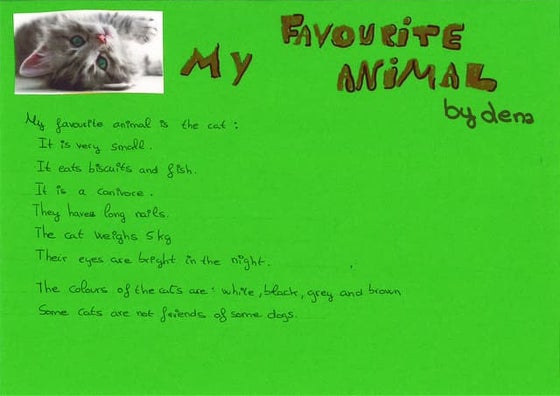 My FAVOURITE
ANiMAL
by dena
My favourite animal is the cat :
It is very small.
It eats biscuits and fish.
It is a canivore.
They haves long nails.
The cat weighs 5 kg
Their eyes are bright in the night.
The colours of the cats are : white, black, grey and brown
Some cats are not friends of some dogs.